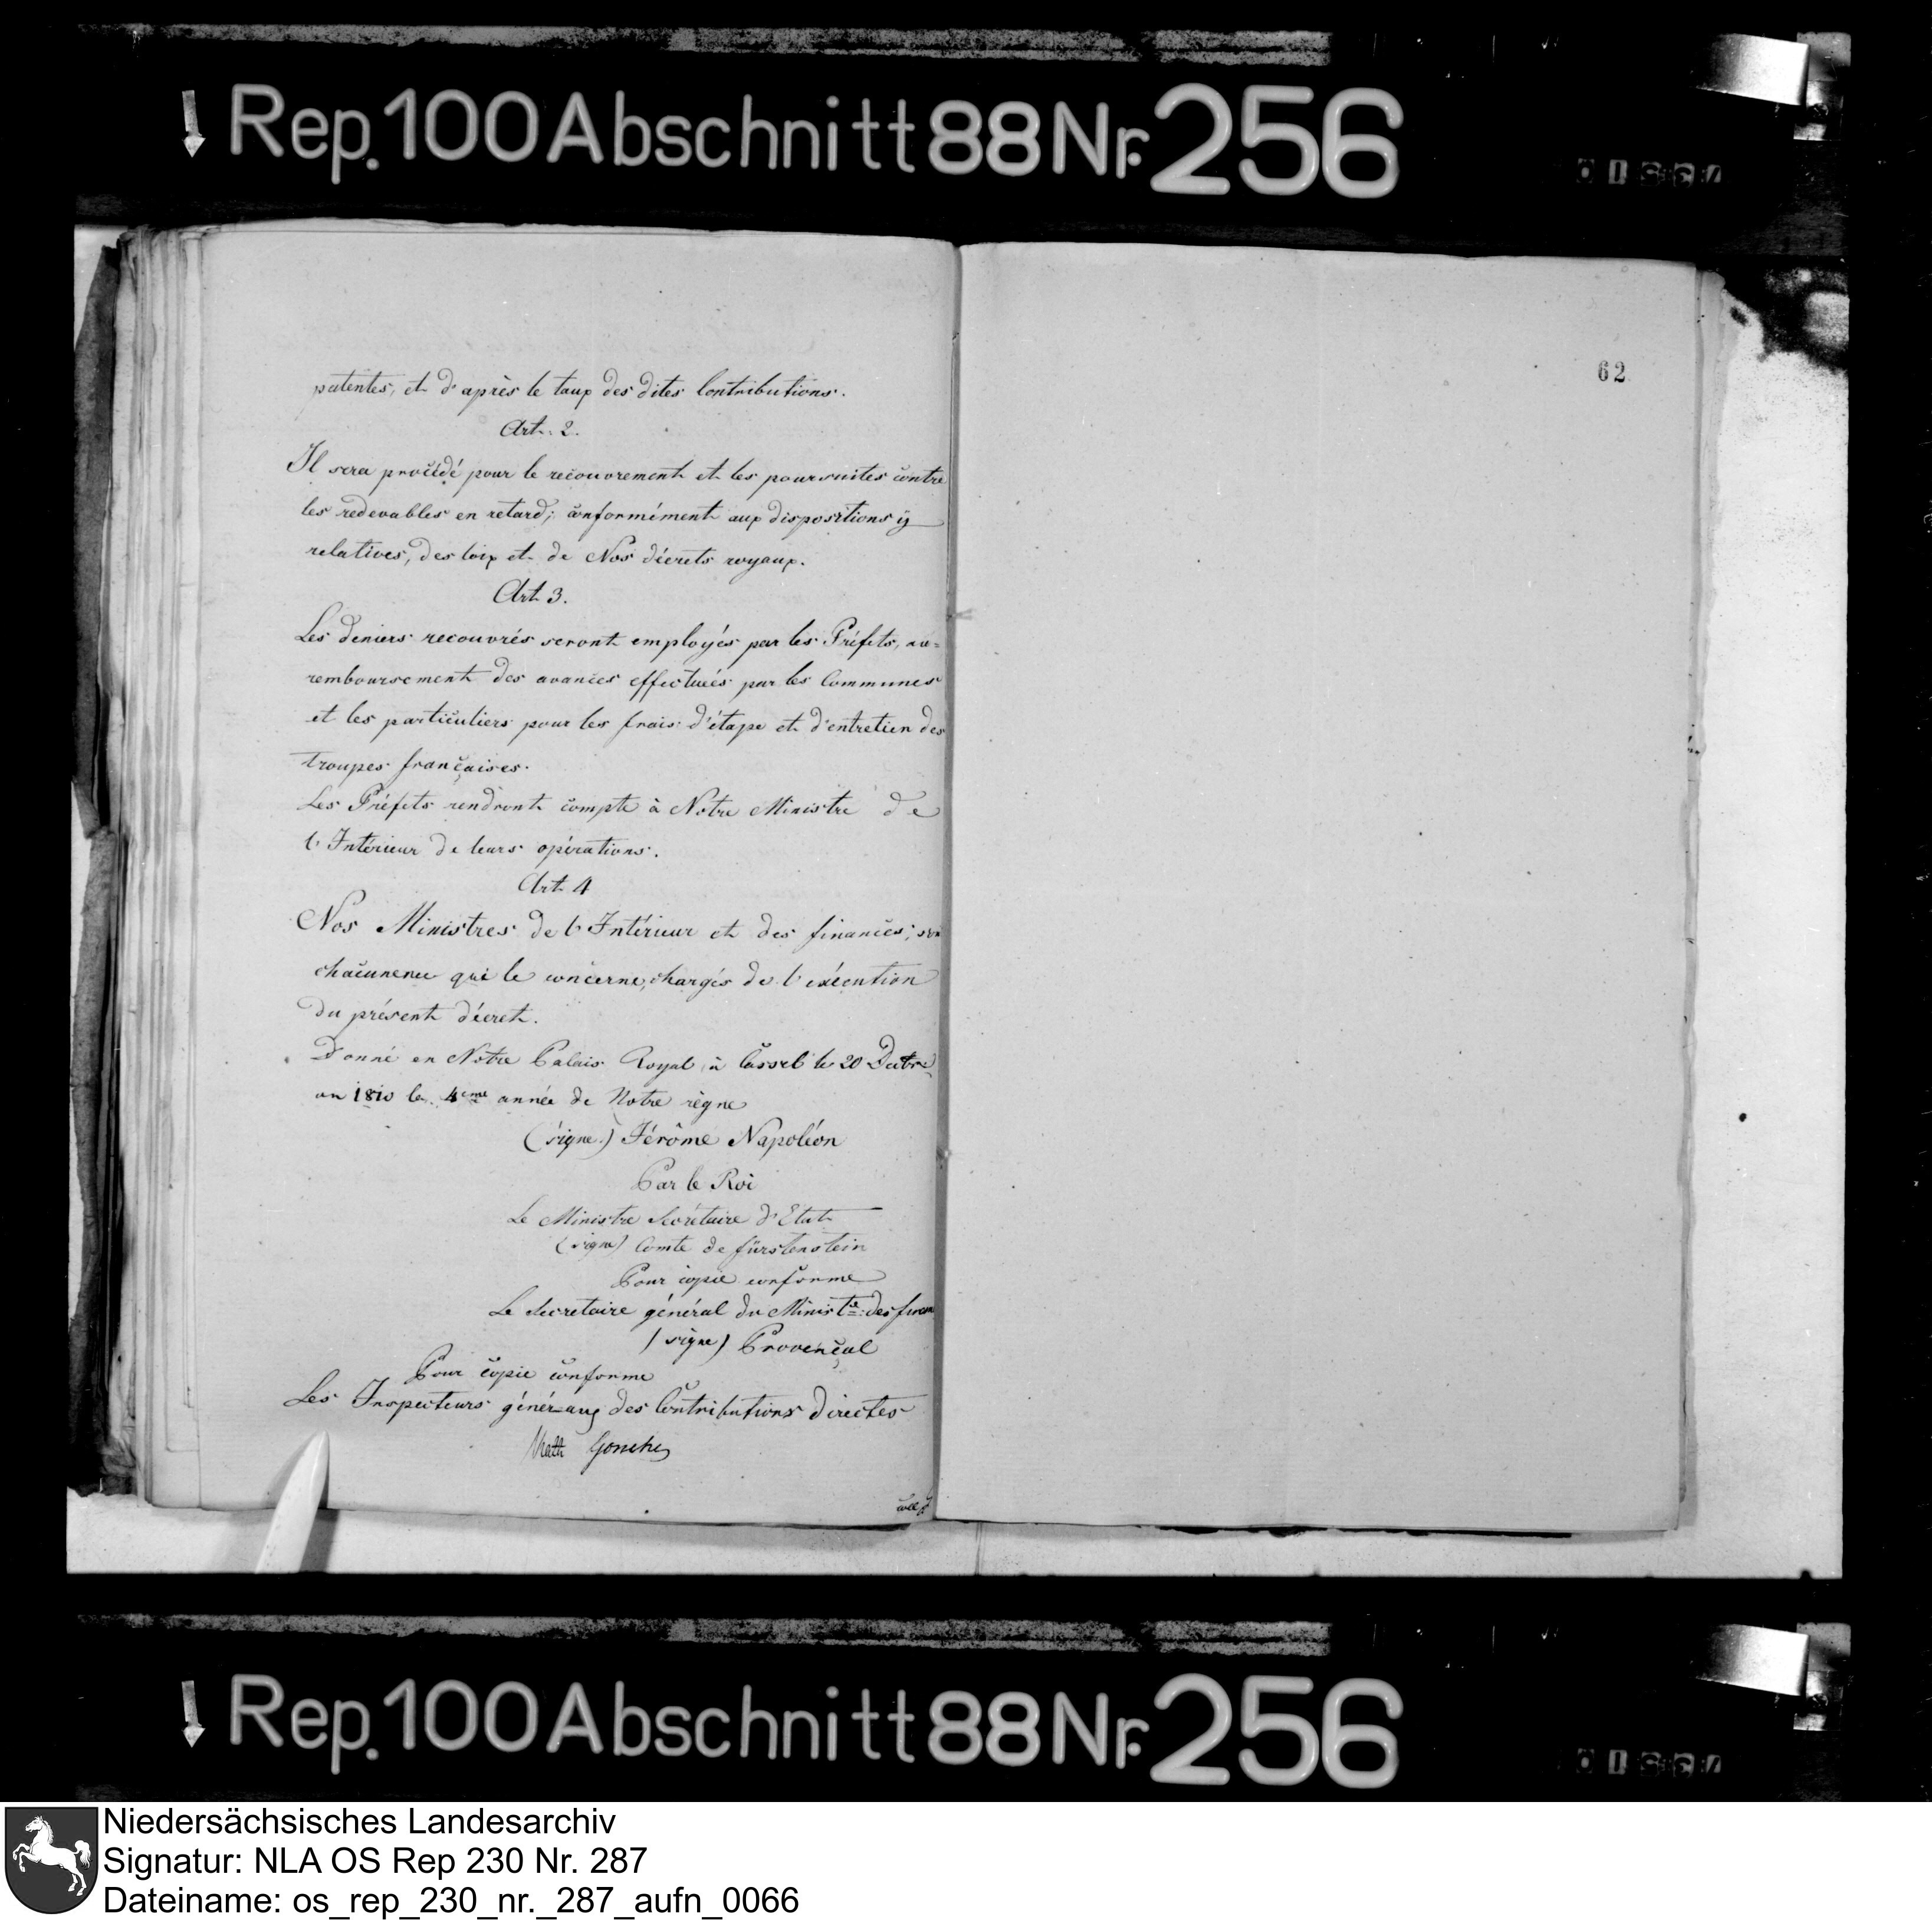 Rep. 100 Abschnitt 88 Nr. 256
62
patentes, et d'après le taux des dites Contributions.
Art. 2.
Il sera procédé pour le recouvrement et les poursuites contre
les redevables en retard; conformément aux dispositions y
relatives, des loix et de Nos décrets royaux.
Art 3.
Les deniers recouvrés seront employés par les Préfets, au=
remboursement des avances effectués par les Communes
et les particuliers pour les frais d'étape et d'entretien des
troupes françaises.
Les Préfets rendront compte à Notre Ministre de
l'Intérieur de leurs opérations.
Art 4
Nos Ministres de l'Intérieur et des finances; son
chacun en ce qui le concerne, chargés de l'exécution
du présent décret.
Donné en Notre Palais Royal à Cassel le 20
an 1810 le 4eme année de Notre règne
(signe.) Jérôme Napoléon
Par le Roi
Le Ministre Secrétaire d'Etat
(signe) Comte de fürstenstein
Pour copie conforme
Le Secretaire général du Ministre des finan
(signe) Provençal
Pour copie conforme
Les Inspecteurs généraux des Contributions directes
Rep. 100 Abschnitt 88 Nr. 256
Niedersächsisches Landesarchiv
Signatur: NLA OS Rep 230 Nr. 287
Dateiname: os_rep_230_nr._287_aufn_0066